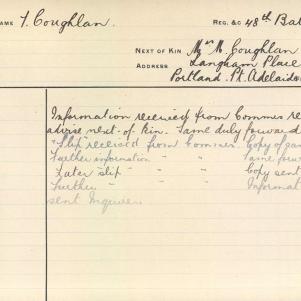 NAME T. Coughlan. REG. &C 48th Bat
NEXT OF KIN Mrs M. Coughlan
ADDRESS Langham Place
Portland. Pk. Adelaide
Information received from Commer re
advise next-of-kin. Same duly forwarde
"Slip" received from Commer. Copy of sam
Further information " " Same forw
Later "slip" " " Copy sent
Further " Informat
sent Inquirer.